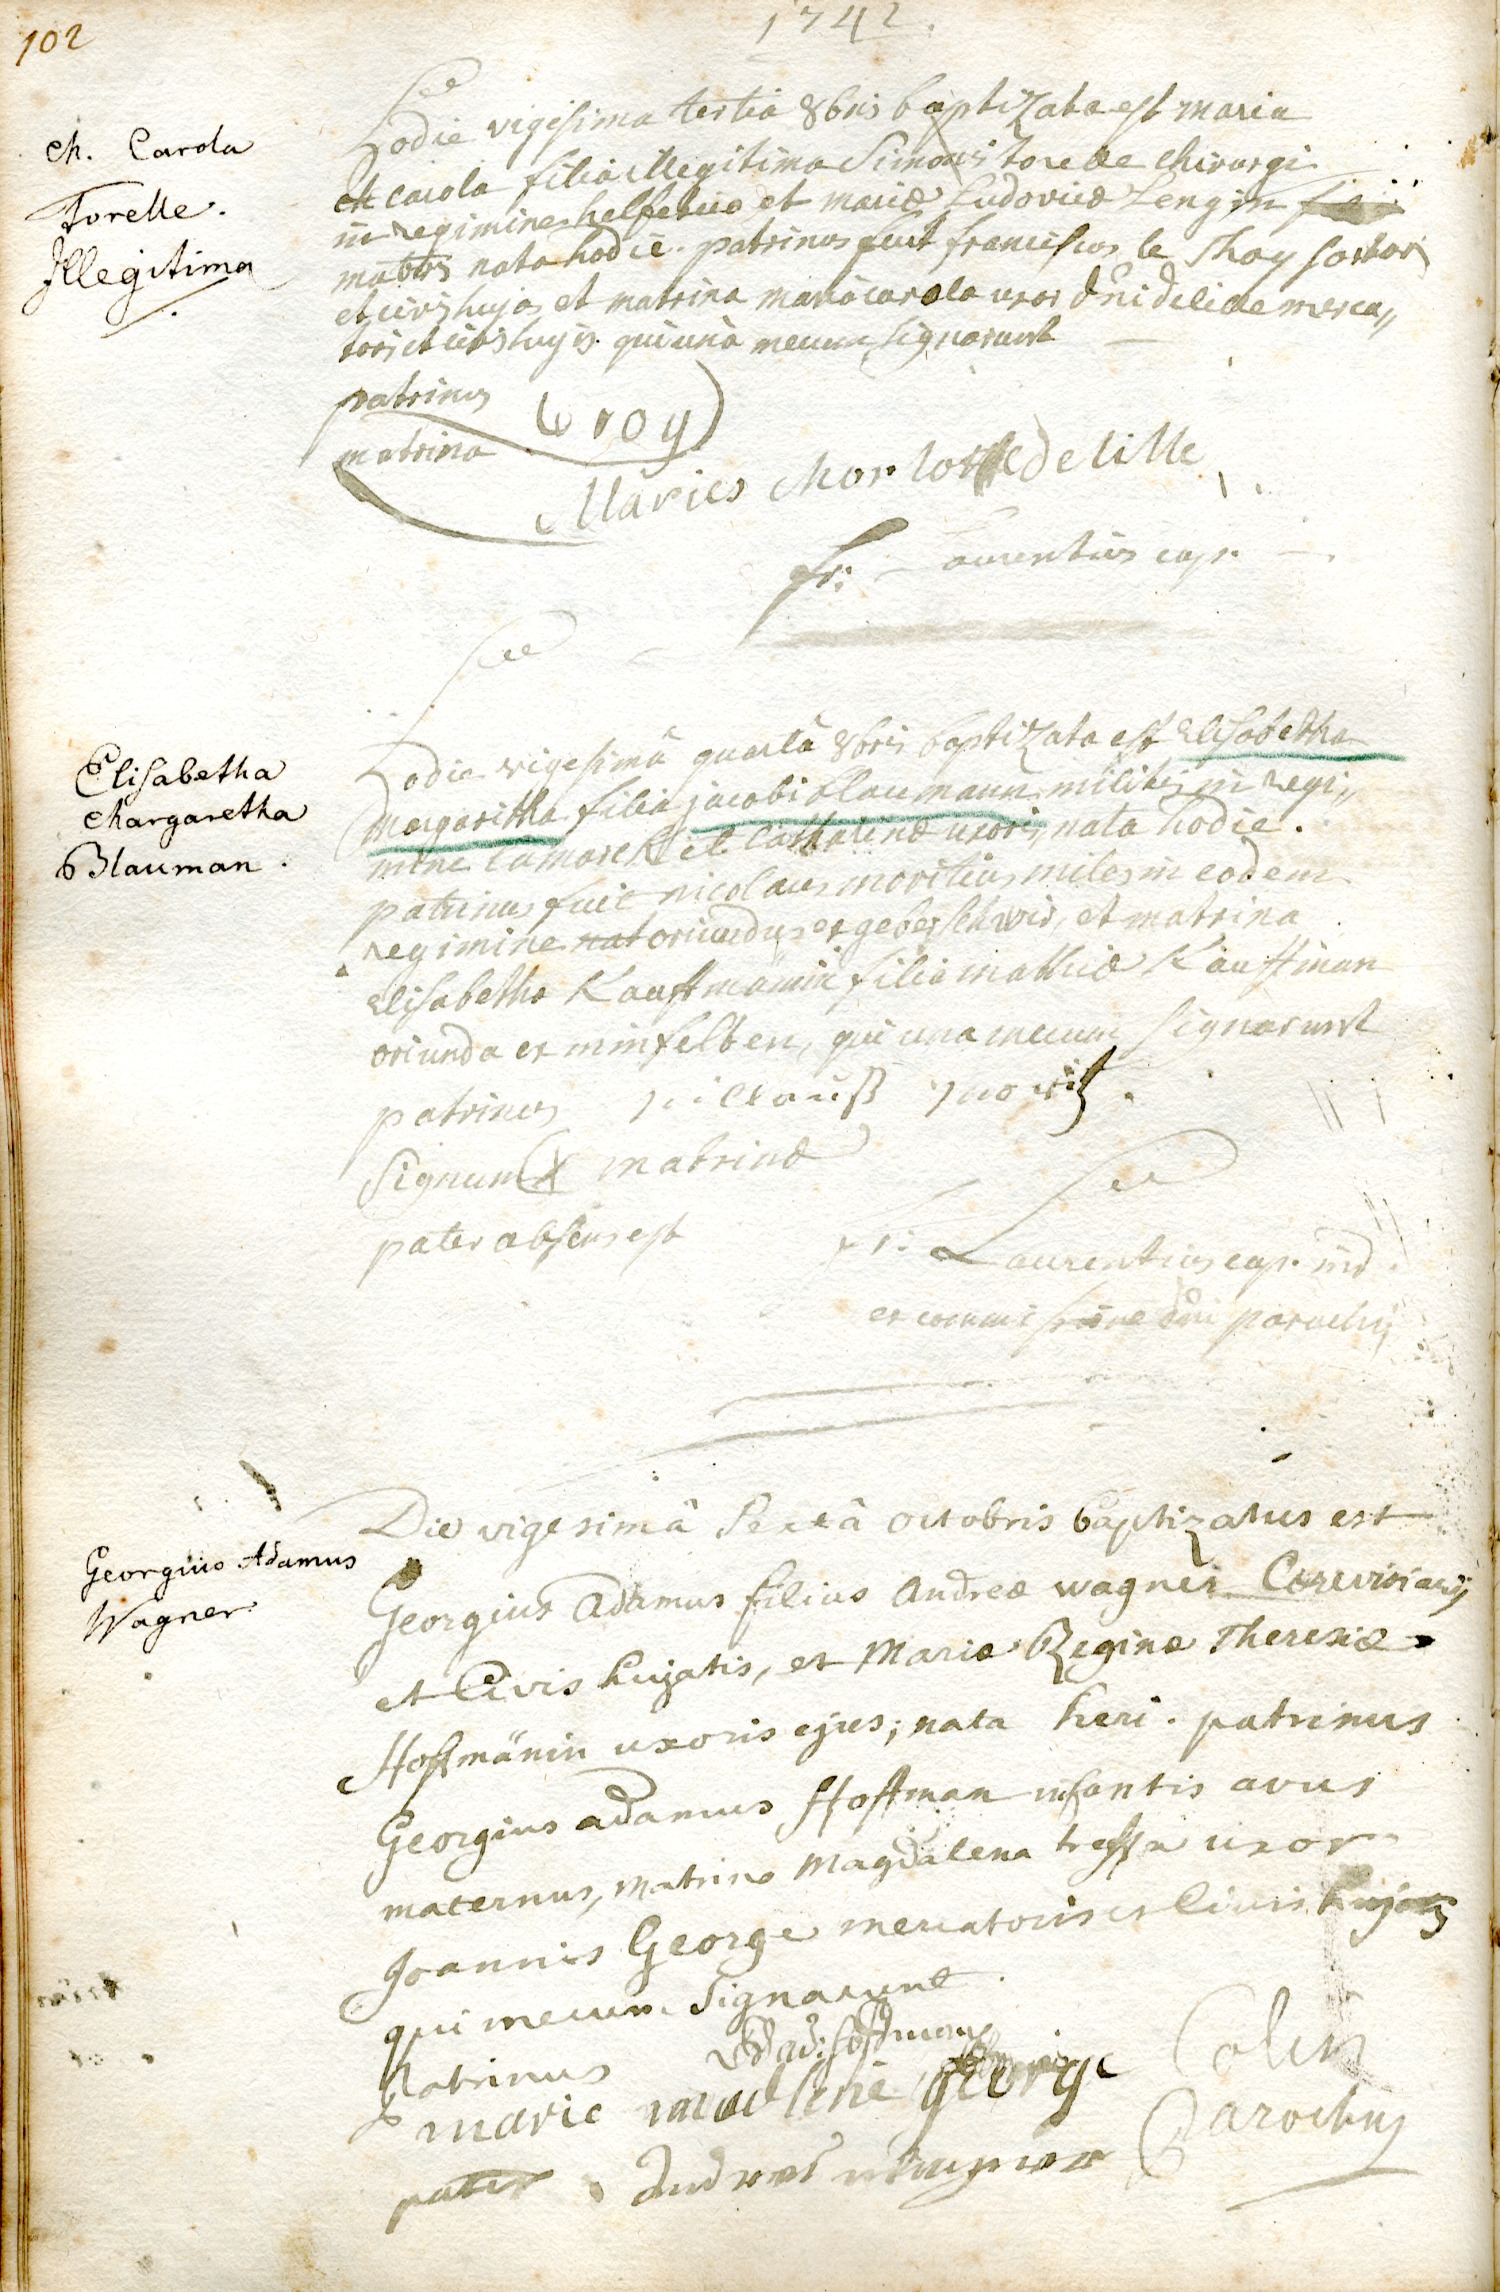 102
1742.
M. Carola
Torelle.
Illegitima
Hodie vigesima tertia 8bris baptizata est maria
carola filia illegitima Simonis Torelle chirurgi
in regimine helfetico et mariæ Ludovicæ Lengin
matris nata hodie. patrinus fuit franciscus le Thoy sartor
et civis hujas et matrina maria carola uxor dni delille merca,,
toris et civis hujis. qui unà mecum signarunt
patrinus Troy
matrina
Maries Charlotte delille
fr: Laurentius cap.
Elisabetha
Margaretha
Blauman.
Hodie vigesimâ quartâ 8bris baptizata est Elisabetha
Margaritha filia jacobi Blaumann militis in regi,,
mine lamarck et Catharinæ uxoris, nata hodie.
patrinus fuit nicolaus moritius miles in eodem
regimine nat oriundus ex geberschwir, et matrina
Elisabetha Kauffmannin filia mathiæ Kauffman
oriunda ex minfelden, qui una mecum signarunt
patrinus niclauß moritz.
Signum X matrinæ
pater absens est
fr: Laurentius cap. ind.
ex commissione dni parochij
Georgius Adamus
Wagner.
Die vigesimâ Sextâ octobris baptizatus est
Georgius Adamus filius Andreæ wagner Cerevisiarij
et Civis hujatis, et Mariæ Reginæ Theresiæ
Hoffmänin uxoris ejus; nata heri. patrinus
Georgius adamus Hoffman infantis avus
maternus, matrina Magdalena treffa uxor
Joannis George mercatoris et Civis hujatis
qui mecum Signarunt.
Patrinus ad: hoffmann
marie madlene george Colin
Parochus
pater Andreas wagner